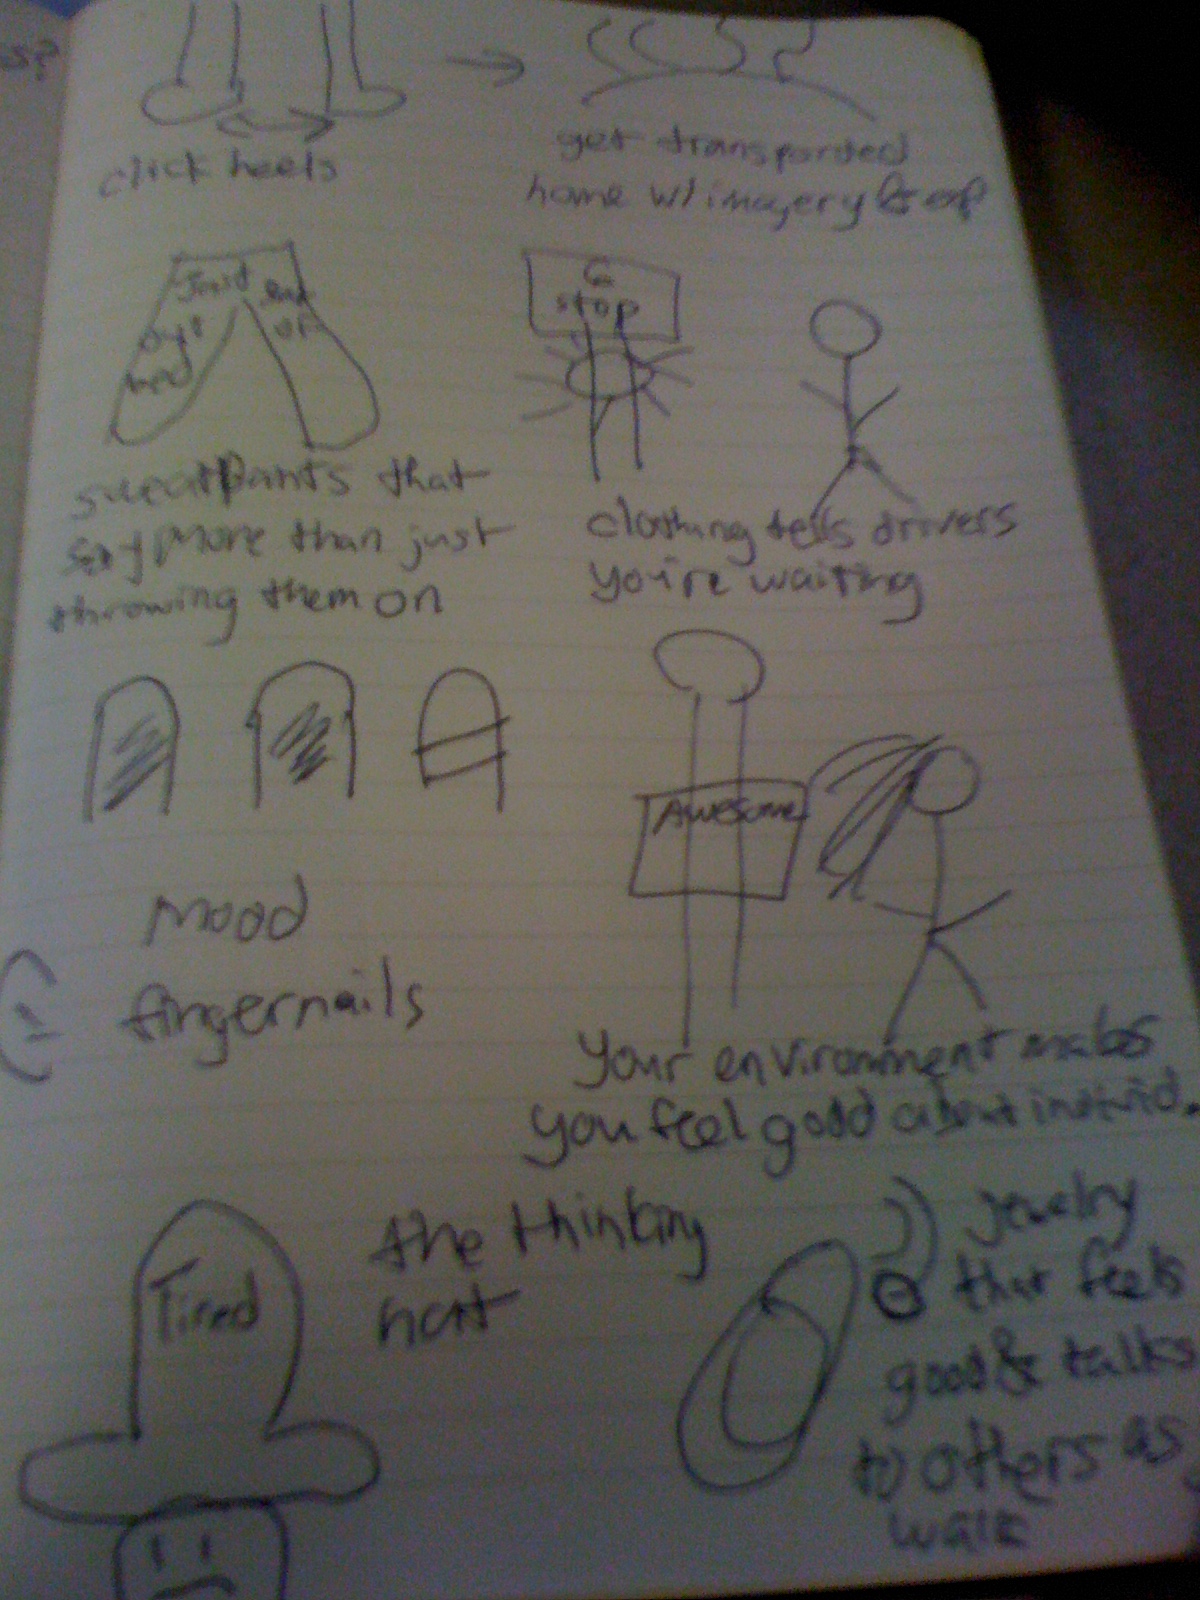 s?
click heels
get transported
home w/ imagery & exp
Just
out
bed
stop
sweatpants that
say more than just
throwing them on
clothing tells drivers
you're waiting
Awesome
mood
fingernails
Your environment makes
you feel good about individ.
Tired
the thinking
hat
jewelry
that feels
good & talks
to others as
walk